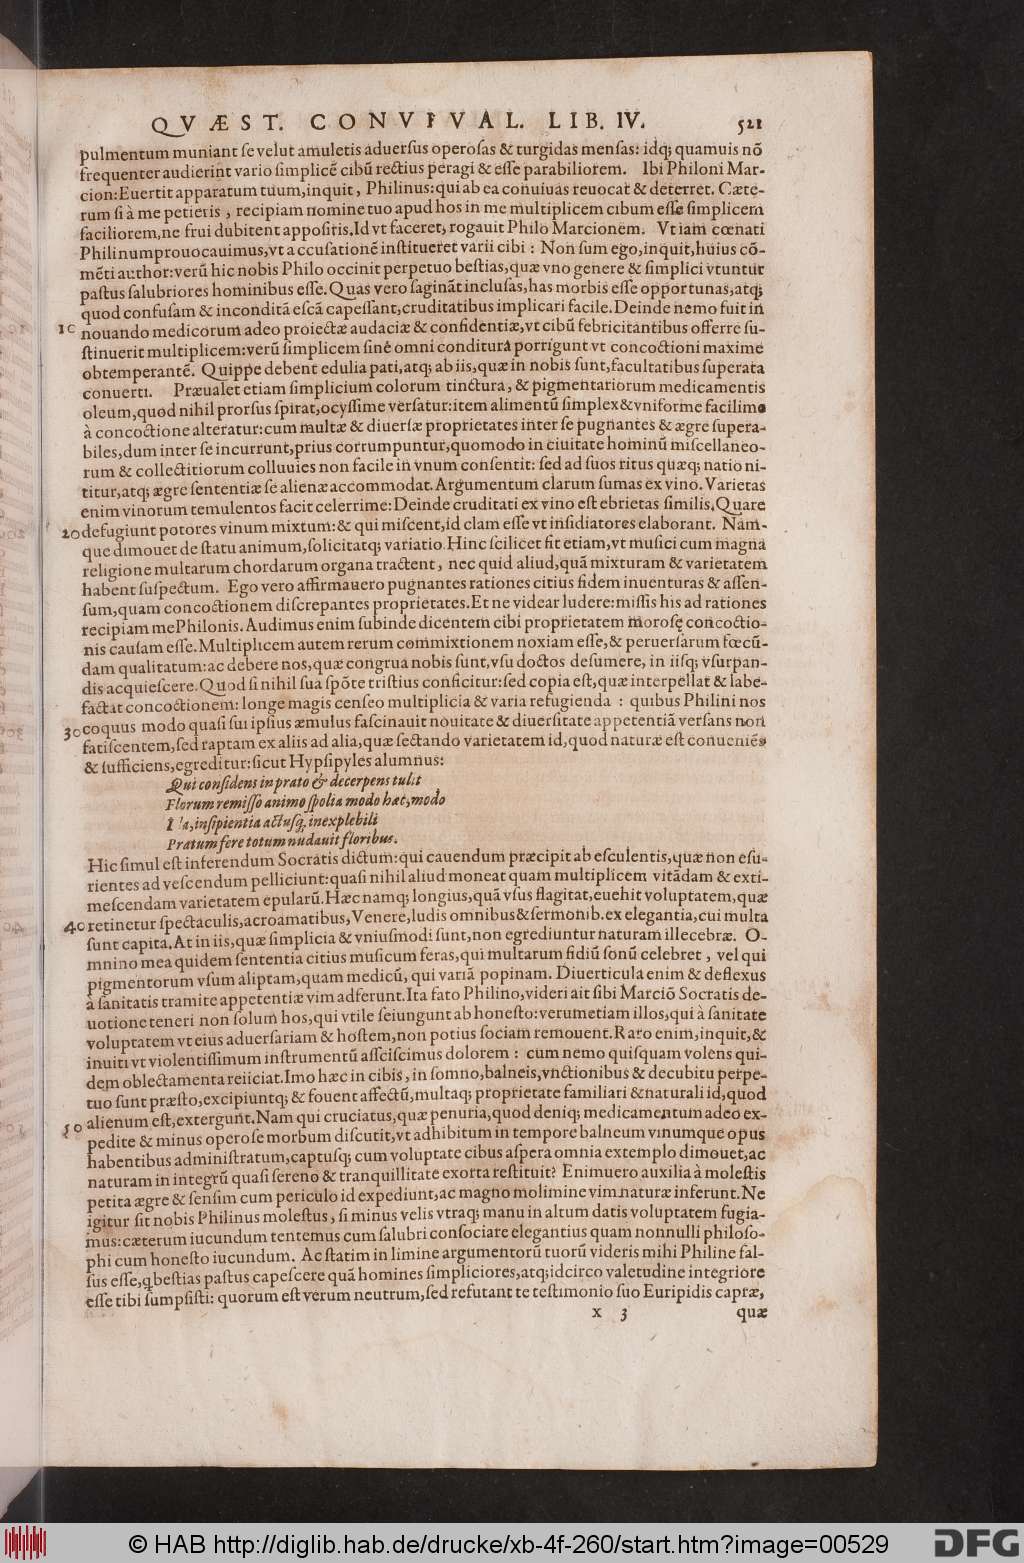 QVÆST. CONVIVAL. LIB. IV. 521
pulmentum muniant ſe velut amuletis aduerſus operoſas & turgidas menſas: idq; quamuis nõ
frequenter audierint vario ſimplicẽ cibũ rectius peragi & eſſe parabiliorem. Ibi Philoni Mar-
cion: Euertit apparatum tuum, inquit, Philinus: qui ab ea conuiuas reuocat & deterret. Cæte-
rum ſi à me petieris, recipiam nomine tuo apud hos in me multiplicem cibum eſſe ſimplicem
faciliorem, ne frui dubitent appoſitis. Id vt faceret, rogauit Philo Marcionem. Vt iam cœnati
Philinum prouocauimus, vt accuſationẽ inſtitueret varii cibi: Non ſum ego, inquit, huius cõ-
mẽti author: verũ hic nobis Philo occinit perpetuo beſtias, quæ vno genere & ſimplici vtuntur
paſtus ſalubriores hominibus eſſe. Quas vero ſaginãt incluſas, has morbis eſſe opportunas, atq;
quod confuſam & inconditã eſcã capeſſant, cruditatibus implicari facile. Deinde nemo fuit in
10 nouando medicorum adeo proiectæ audaciæ & confidentiæ, vt cibũ febricitantibus offerre ſu-
ſtinuerit multiplicem: verũ ſimplicem ſine omni conditura porrigunt vt concoctioni maxime
obtemperantẽ. Quippe debent edulia pati, atq; ab iis, quæ in nobis ſunt, facultatibus ſuperata
conuerti. Præualet etiam ſimplicium colorum tinctura, & pigmentariorum medicamentis
oleum, quod nihil prorſus ſpirat, ocyſſime verſatur: item alimentũ ſimplex & vniforme facilime
à concoctione alteratur: cum multæ & diuerſæ proprietates inter ſe pugnantes & ægre ſupera-
biles, dum inter ſe incurrunt, prius corrumpuntur, quomodo in ciuitate hominũ miſcellaneo-
rum & collectitiorum colluuies non facile in vnum conſentit: ſed ad ſuos ritus quæq; natio ni-
titur, atq; ægre ſententiæ ſe alienæ accommodat. Argumentum clarum ſumas ex vino. Varietas
enim vinorum temulentos facit celerrime: Deinde cruditati ex vino eſt ebrietas ſimilis. Quare
20 defugiunt potores vinum mixtum: & qui miſcent, id clam eſſe vt inſidiatores elaborant. Nam-
que dimouet de ſtatu animum, ſolicitatq; variatio. Hinc ſcilicet fit etiam, vt muſici cum magna
religione multarum chordarum organa tractent, nec quid aliud, quã mixturam & varietatem
habent ſuſpectum. Ego vero affirmauero pugnantes rationes citius fidem inuenturas & aſſen-
ſum, quam concoctionem diſcrepantes proprietates. Et ne videar ludere: miſſis his ad rationes
recipiam me Philonis. Audimus enim ſubinde dicentem cibi proprietatem moroſę concoctio-
nis cauſam eſſe. Multiplicem autem rerum commixtionem noxiam eſſe, & peruerſarum fœcũ-
dam qualitatum: ac debere nos, quæ congrua nobis ſunt, vſu doctos deſumere, in iiſq; vſurpan-
dis acquieſcere. Quod ſi nihil ſua ſpõte triſtius conficitur: ſed copia eſt, quæ interpellat & labe-
factat concoctionem: longe magis cenſeo multiplicia & varia refugienda: quibus Philini nos
30 coquus modo quaſi ſui ipſius æmulus faſcinauit nouitate & diuerſitate appetentiã verſans non
fatiſcentem, ſed raptam ex aliis ad alia, quæ ſectando varietatem id, quod naturæ eſt conueniẽs
& ſufficiens, egreditur: ſicut Hypſipyles alumnus:
Qui conſidens in prato & decerpens tulit
Florum remiſſo animo ſpolia modo hæc, modo
Illa, inſipientia actuſq; inexplebili
Pratum fere totum nudauit floribus.
Hic ſimul eſt inferendum Socratis dictum: qui cauendum præcipit ab eſculentis, quæ non eſu-
rientes ad veſcendum pelliciunt: quaſi nihil aliud moneat quam multiplicem vitãdam & exti-
meſcendam varietatem epularũ. Hæc namq; longius, quã vſus flagitat, euehit voluptatem, quæ
40 retinetur ſpectaculis, acroamatibus, Venere, ludis omnibus & ſermonib. ex elegantia, cui multa
ſunt capita. At in iis, quæ ſimplicia & vniuſmodi ſunt, non egrediuntur naturam illecebræ. O-
mnino mea quidem ſententia citius muſicum feras, qui multarum fidiũ ſonũ celebret, vel qui
pigmentorum vſum aliptam, quam medicũ, qui variã popinam. Diuerticula enim & deflexus
à ſanitatis tramite appetentiæ vim adferunt. Ita fato Philino, videri ait ſibi Marciõ Socratis de-
uotione teneri non ſolum hos, qui vtile ſeiungunt ab honeſto: verum etiam illos, qui à ſanitate
voluptatem vt eius aduerſariam & hoſtem, non potius ſociam remouent. Raro enim, inquit, &
inuiti vt violentiſſimum inſtrumentũ aſſciſcimus dolorem: cum nemo quiſquam volens qui-
dem oblectamenta reiiciat. Imo hæc in cibis, in ſomno, balneis, vnctionibus & decubitu perpe-
tuo ſunt præſto, excipiuntq; & fouent affectũ, multaq; proprietate familiari & naturali id, quod
50 alienum eſt, extergunt. Nam qui cruciatus, quæ penuria, quod deniq; medicamentum adeo ex-
pedite & minus operoſe morbum diſcutit, vt adhibitum in tempore balneum vinumque opus
habentibus adminiſtratum, captuſq; cum voluptate cibus aſpera omnia extemplo dimouet, ac
naturam in integrũ quaſi ſereno & tranquillitate exorta reſtituit? Enimuero auxilia à moleſtis
petita ægre & ſenſim cum periculo id expediunt, ac magno molimine vim naturæ inferunt. Ne
igitur ſit nobis Philinus moleſtus, ſi minus velis vtraq; manu in altum datis voluptatem fugia-
mus: cæterum iucundum tentemus cum ſalubri conſociare elegantius quam nonnulli philoſo-
phi cum honeſto iucundum. Ac ſtatim in limine argumentorũ tuorũ videris mihi Philine fal-
ſus eſſe, q beſtias paſtus capeſcere quã homines ſimpliciores, atq; idcirco valetudine integriore
eſſe tibi ſumpſiſti: quorum eſt verum neutrum, ſed refutant te teſtimonio ſuo Euripidis capræ,
x 3 quæ
© HAB http://diglib.hab.de/drucke/xb-4f-260/start.htm?image=00529 DFG